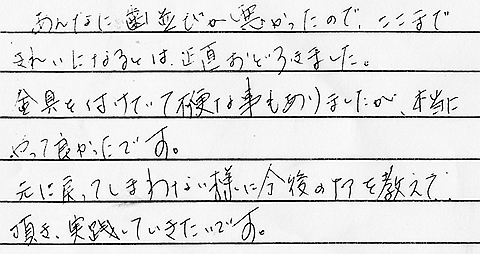 あんなに歯並びが悪かったので、ここまで
きれいになるとは、正直おどろきました。
金具を付けていて不便な事もありましたが、本当に
やって良かったです。
元に戻ってしまわない様に今後のケアを教えて
頂き、実践していきたいです。